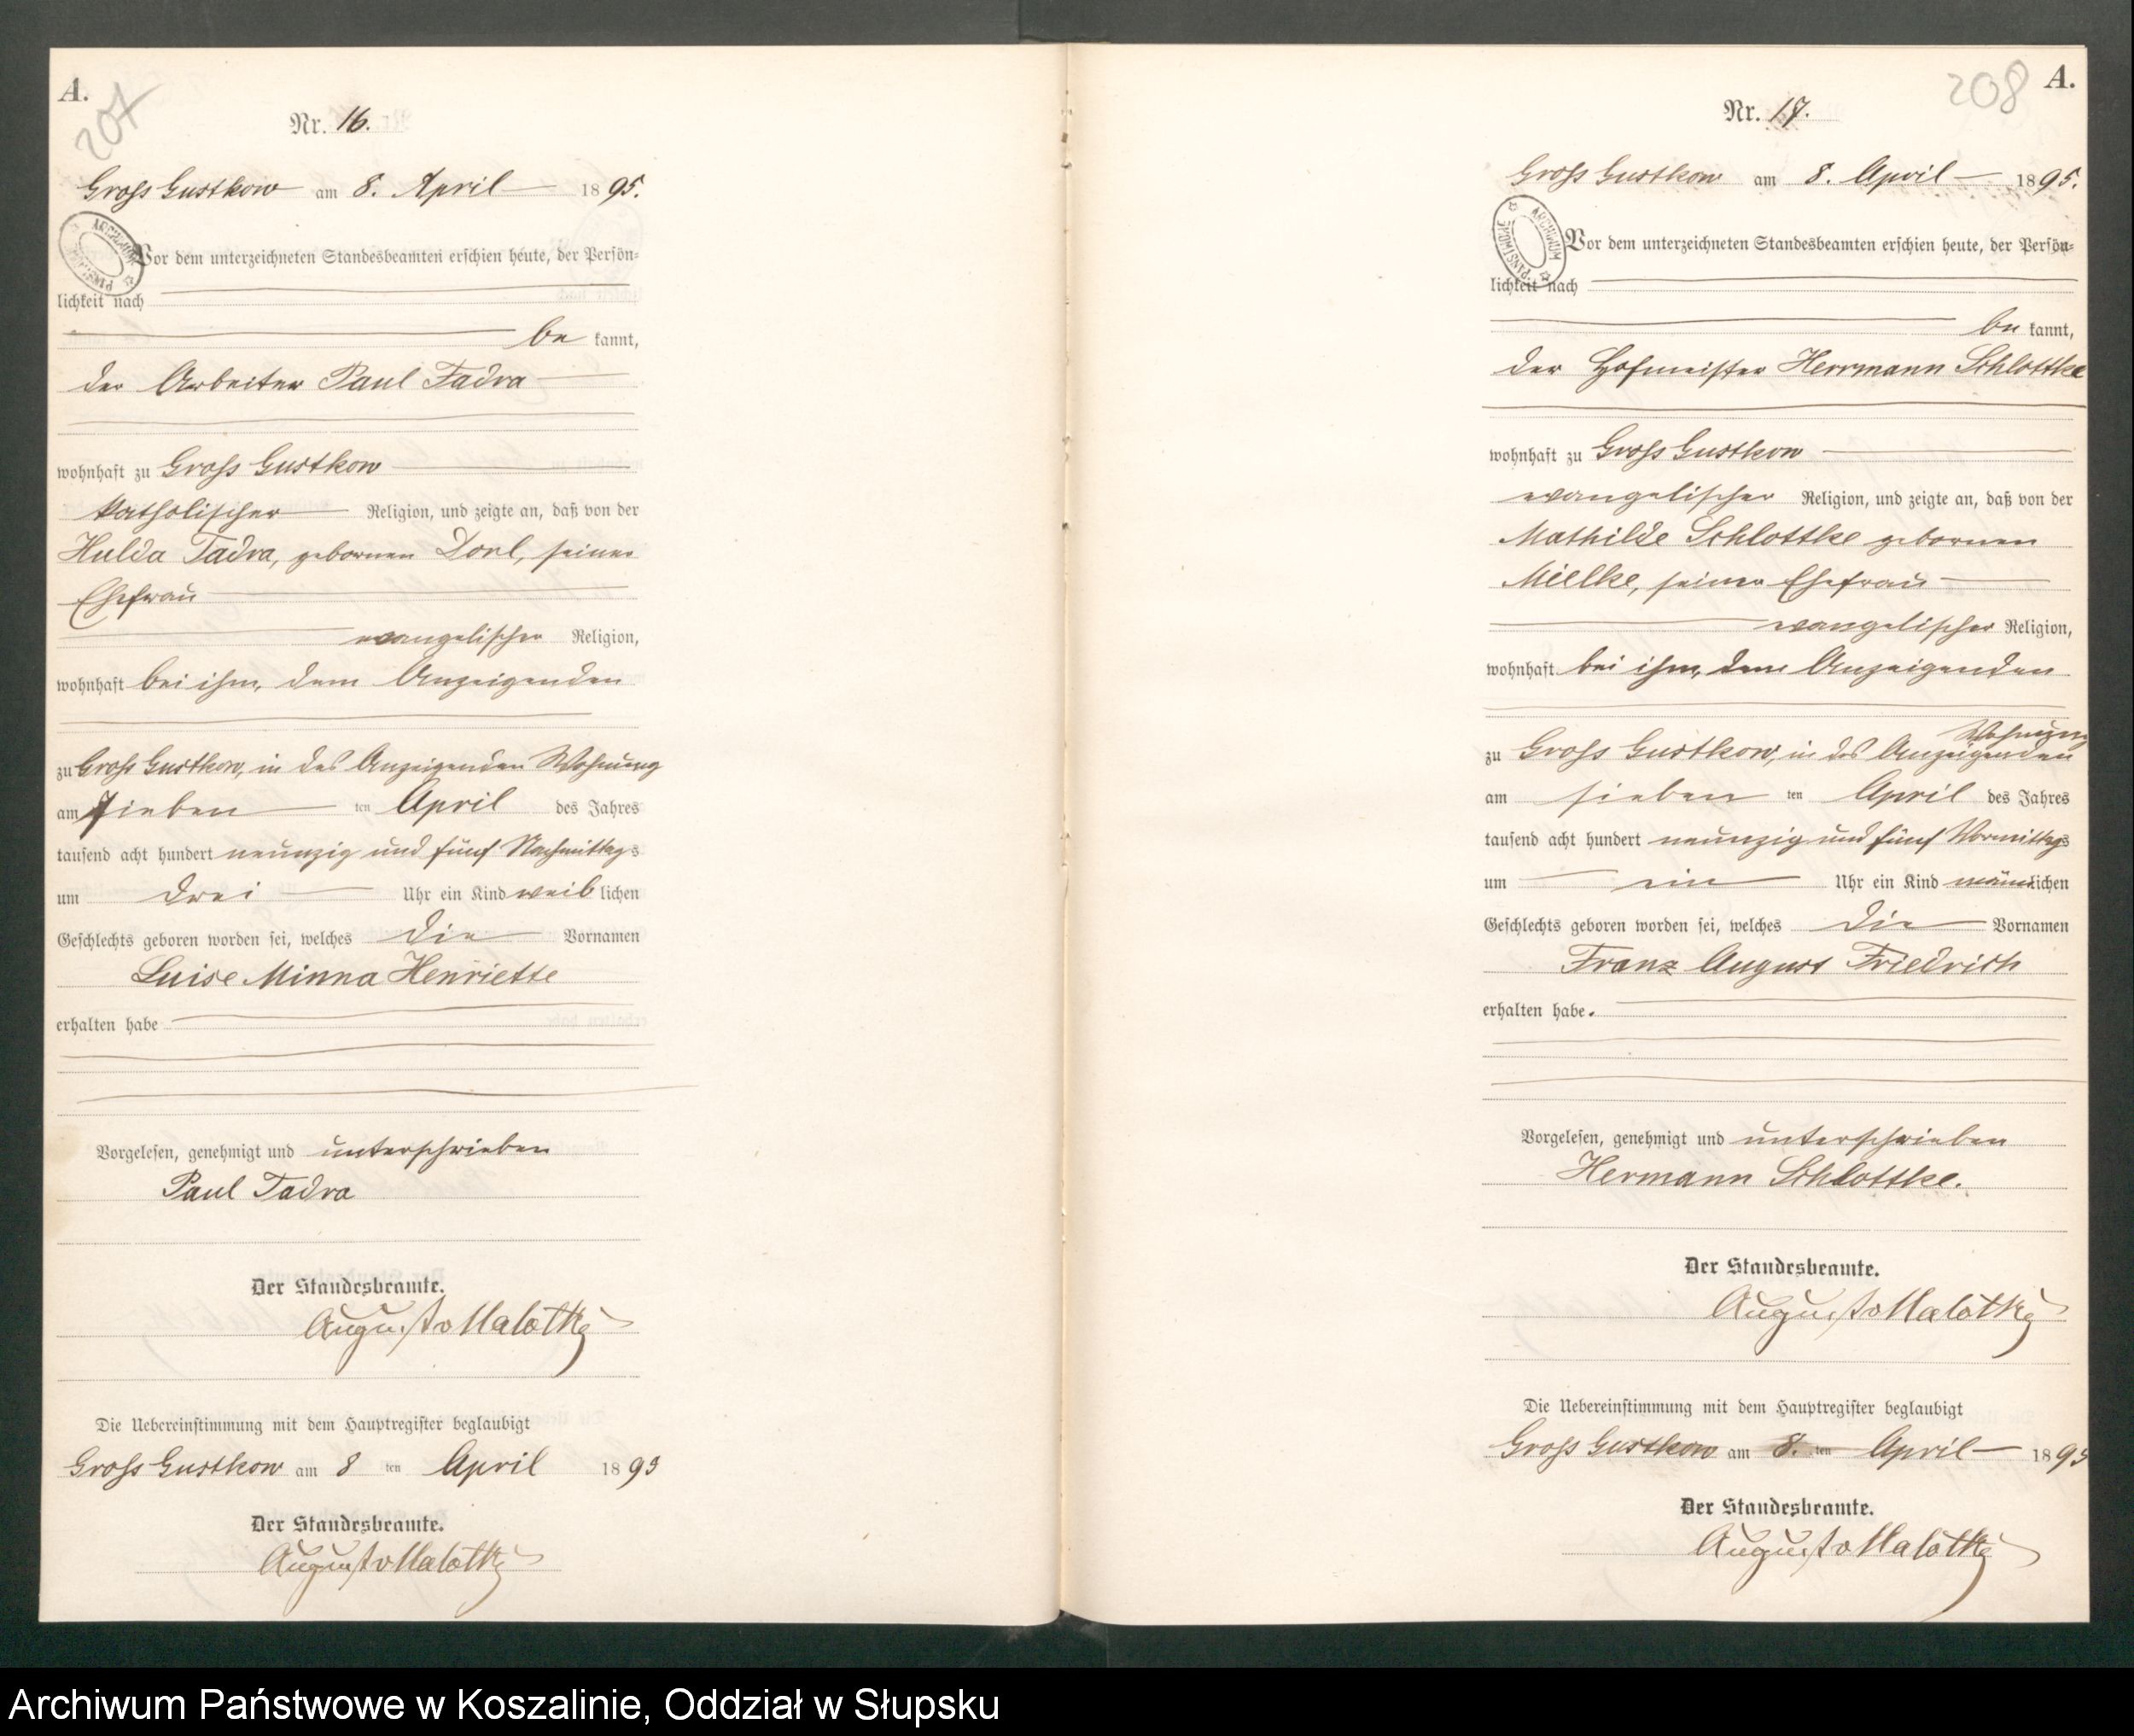 A.
207
Nr. 16.
Gross Gustkow am 8. April 1895.
Vor dem unterzeichneten Standesbeamten erschien heute, der Persön-
lichkeit nach
be kannt,
der Arbeiter Paul Tadra
wohnhaft zu Gross Gustkow
katholischer Religion, und zeigte an, daß von der
Hulda Tadra, gebornen Dorl, seiner
Ehefrau
evangelischer Religion,
wohnhaft bei ihm, dem Anzeigenden
zu Gross Gustkow, in des Anzeigenden Wohnung
am sieben ten April des Jahres
tausend acht hundert neunzig und fünf Nachmittags
um drei Uhr ein Kind weiblichen
Geschlechts geboren worden sei, welches die Vornamen
Luise Minna Henriette
erhalten habe
Vorgelesen, genehmigt und unterschrieben
Paul Tadra
Der Standesbeamte.
August v Malottky
Die Uebereinstimmung mit dem Hauptregister beglaubigt
Gross Gustkow am 8 ten April 1895
Der Standesbeamte.
August v Malottky
208
A.
Nr. 17.
Gross Gustkow am 8. April 1895.
ARCHIWUM PAŃSTWOWE
Vor dem unterzeichneten Standesbeamten erschien heute, der Persön-
lichkeit nach
be kannt,
der Hofmeister Herrmann Schlottke
wohnhaft zu Gross Gustkow
evangelischer Religion, und zeigte an, daß von der
Mathilde Schlottke gebornen
Mielke, seiner Ehefrau
evangelischer Religion,
wohnhaft bei ihm, dem Anzeigenden
zu Gross Gustkow, in des Anzeigenden Wohnung
am sieben ten April des Jahres
tausend acht hundert neunzig und fünf Vormittags
um ein Uhr ein Kind männlichen
Geschlechts geboren worden sei, welches die Vornamen
Franz August Friedrich
erhalten habe.
Vorgelesen, genehmigt und unterschrieben
Hermann Schlottke.
Der Standesbeamte.
August v Malottky
Die Uebereinstimmung mit dem Hauptregister beglaubigt
Gross Gustkow am 8. ten April 1895
Der Standesbeamte.
August v Malottky
Archiwum Państwowe w Koszalinie, Oddział w Słupsku